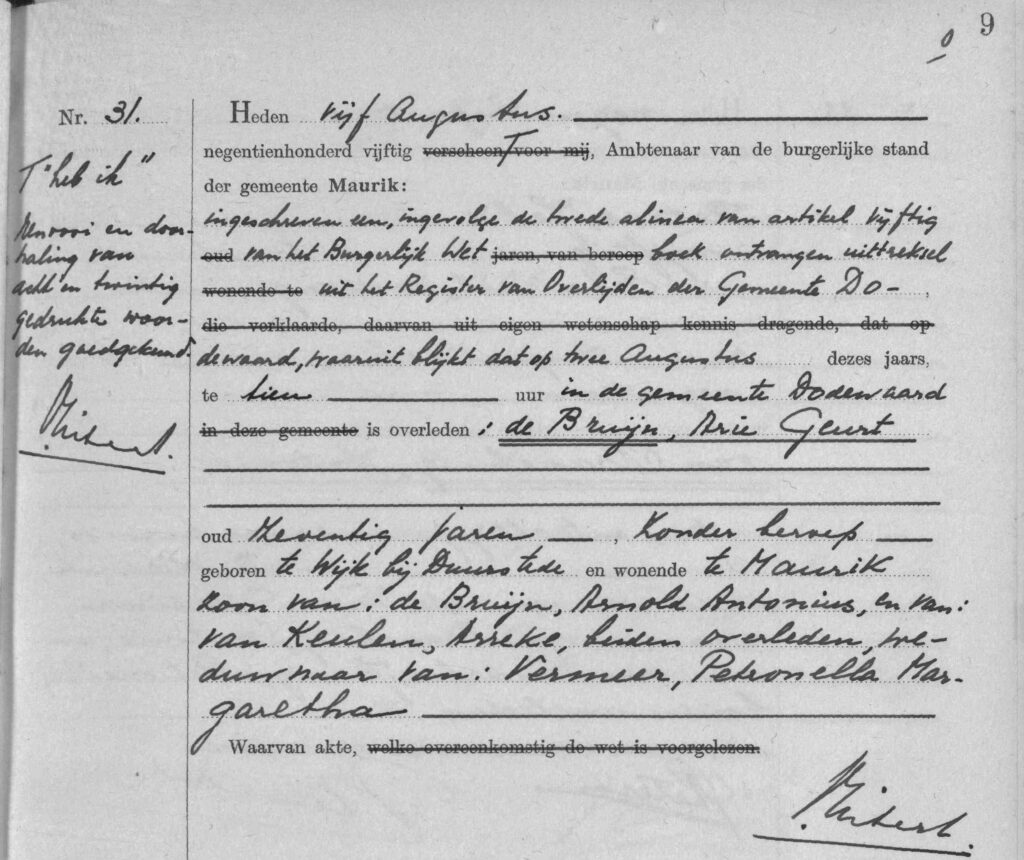 9
0
Nr. 31.
Heden vijf Augustus.
negentienhonderd vijftig ~~verscheen~~ T ~~voor mij~~, Ambtenaar van de burgerlijke stand
der gemeente Maurik:
T "heb ik"
Renvooi en door-
haling van
acht en twintig
gedrukte woor-
den goedgekeurd.
ingeschreven een, ingevolge de twede alinea van artikel vijftig
~~oud~~ van het Burgerlijk Wet ~~jaren, van beroep~~ boek ontvangen uittreksel
~~wonende te~~ uit het Register van Overlijden der Gemeente Do-,
~~die verklaarde, daarvan uit eigen wetenschap kennis dragende, dat op~~
dewaard, waaruit blijkt dat op twee Augustus dezes jaars,
te tien uur in de gemeente Dodewaard
~~in deze gemeente~~ is overleden: de Bruijn, Arie Geurt
oud zeventig jaren, zonder beroep
geboren te Wijk bij Duurstede en wonende te Maurik
zoon van: de Bruijn, Arnold Antonius, en van:
van Keulen, Arreke, beiden overleden, we-
duwnaar van: Vermeer, Petronella Mar-
garetha
Waarvan akte, ~~welke overeenkomstig de wet is voorgelezen.~~